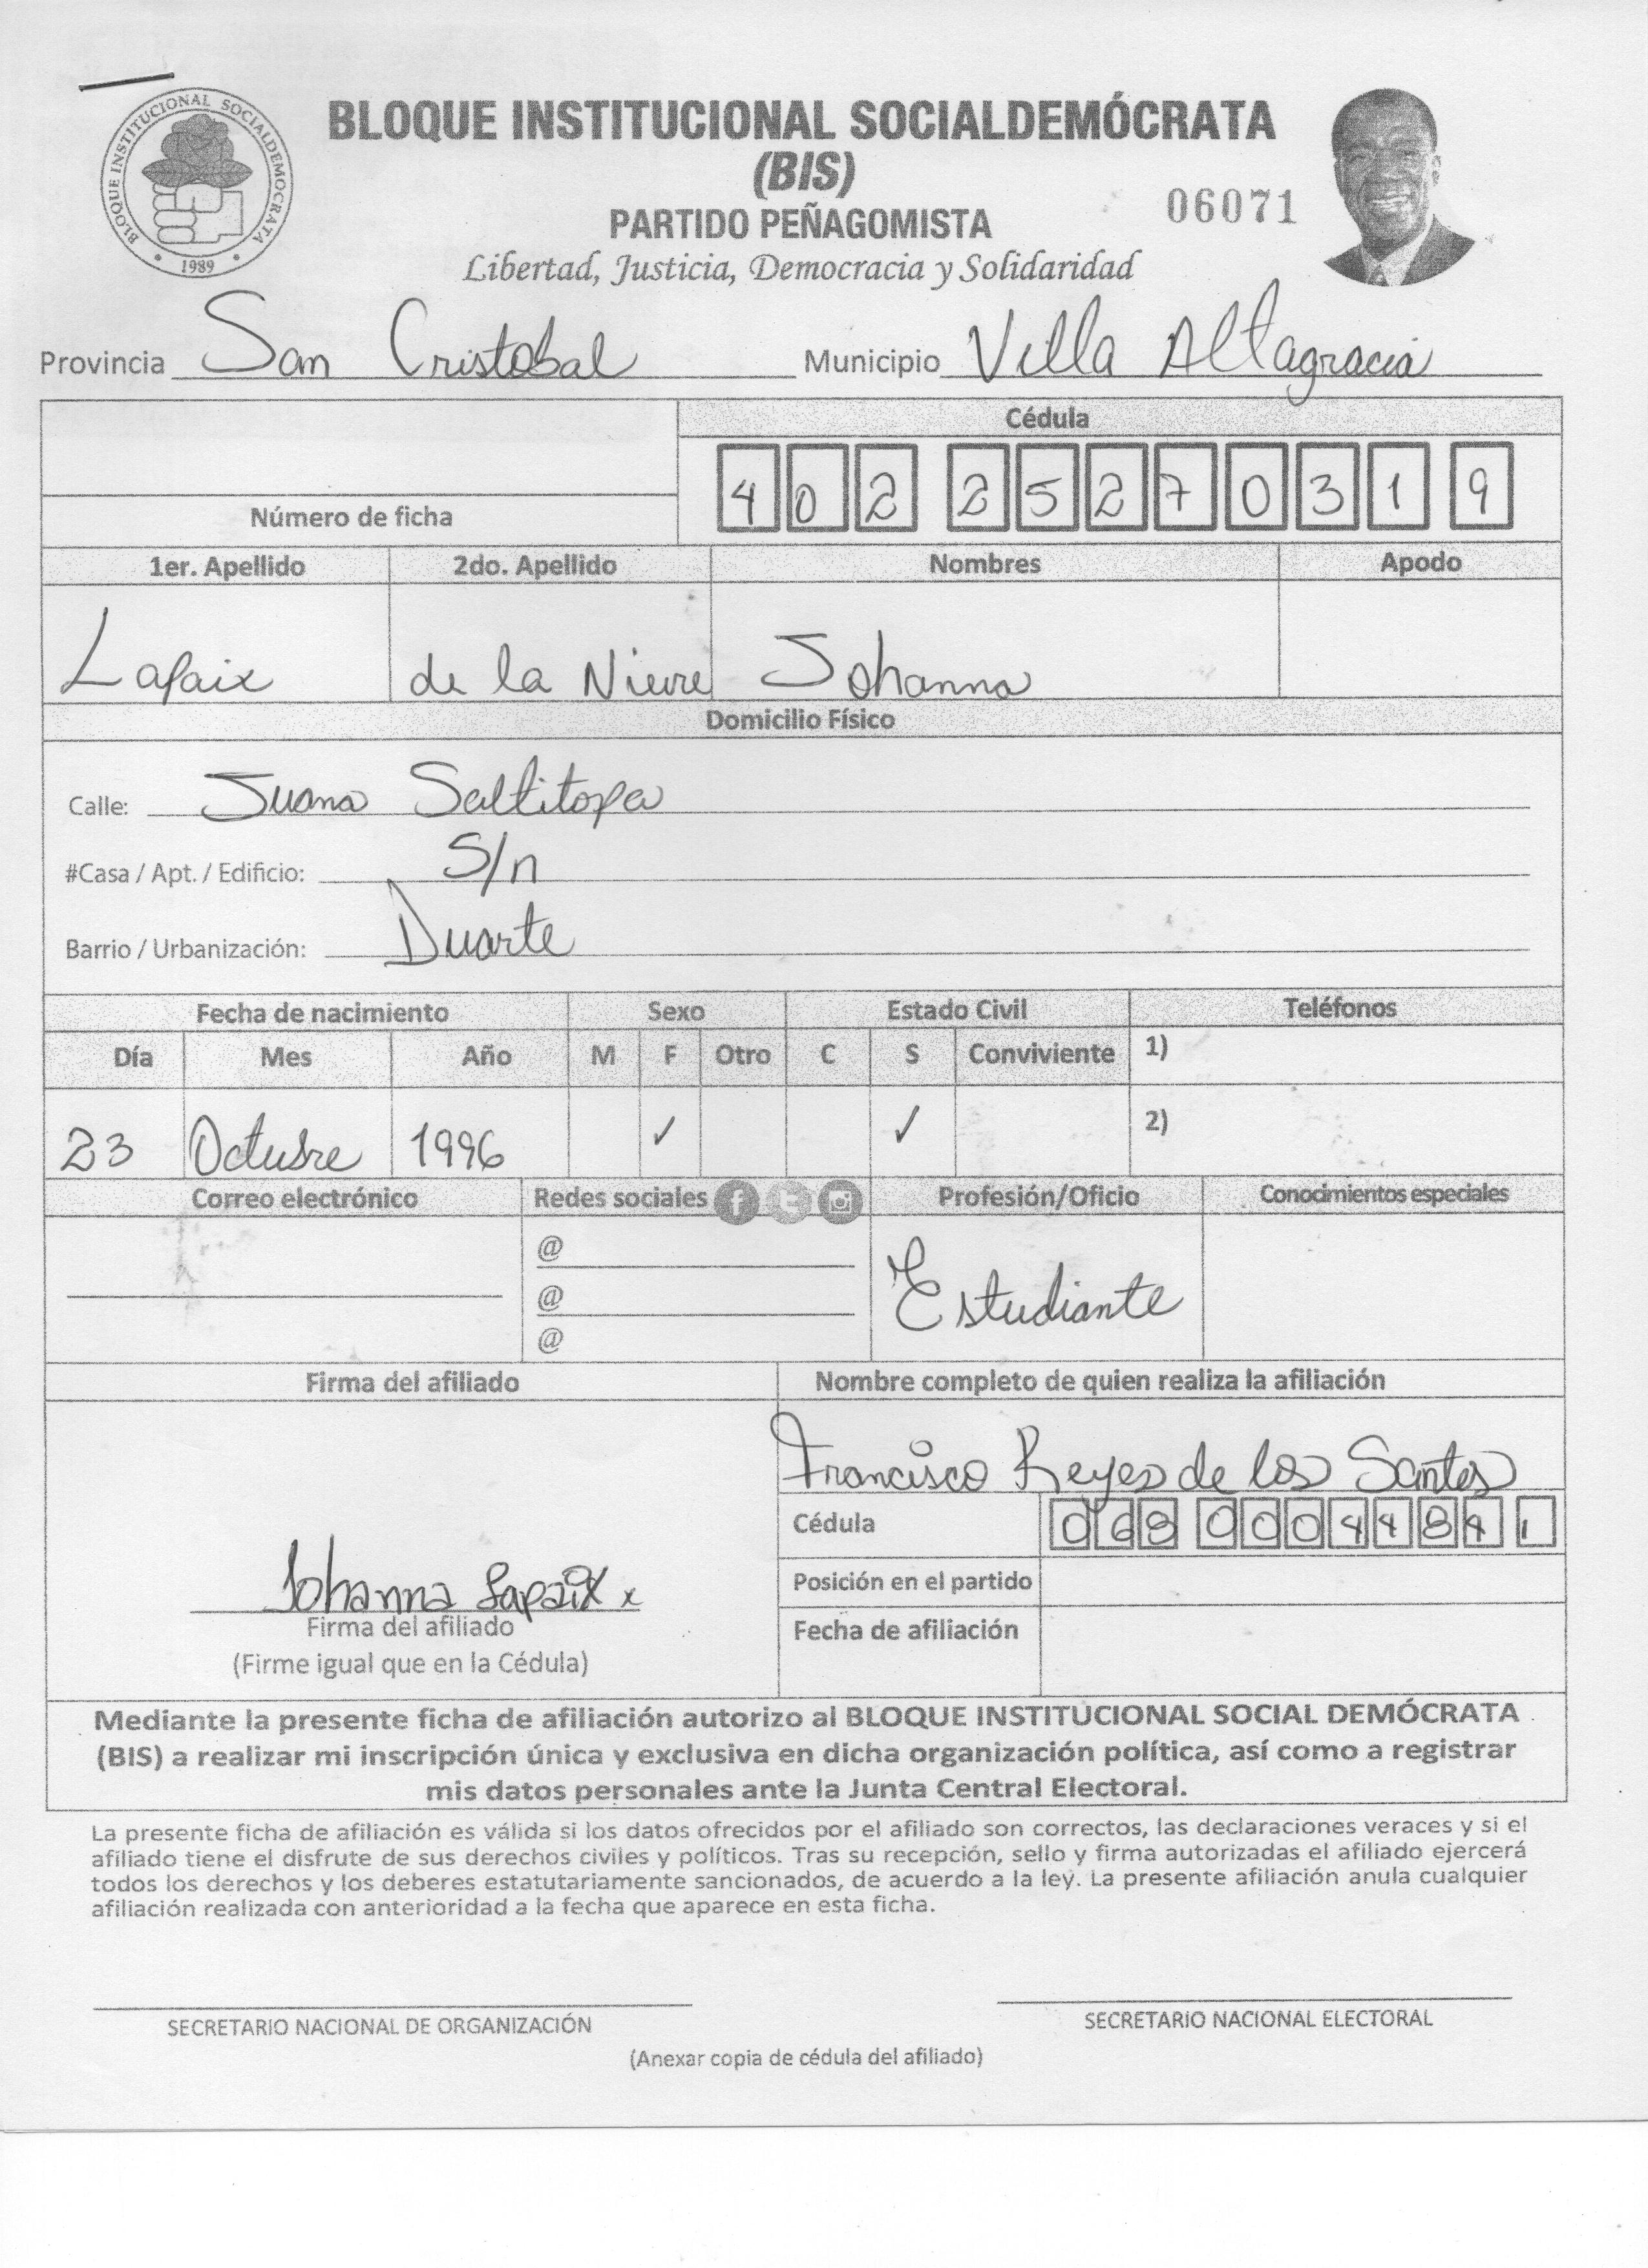 BLOQUE INSTITUCIONAL SOCIALDEMOCRATA
1989
BLOQUE INSTITUCIONAL SOCIALDEMÓCRATA
(BIS)
PARTIDO PEÑAGOMISTA
06071
Libertad, Justicia, Democracia y Solidaridad
Provincia San Cristobal Municipio Villa Altagracia
Cédula
4 0 2 2 5 2 7 0 3 1 9
Número de ficha
1er. Apellido 2do. Apellido Nombres Apodo
Lapaix de la Nieve Johanna
Domicilio Físico
Calle: Juana Saltitopa
#Casa / Apt. / Edificio: S/n
Barrio / Urbanización: Duarte
Fecha de nacimiento Sexo Estado Civil Teléfonos
Día Mes Año M F Otro C S Conviviente 1)
23 Octubre 1996 ✓ ✓ 2)
Correo electrónico Redes sociales Profesión/Oficio Conocimientos especiales
@
@
@
Estudiante
Firma del afiliado Nombre completo de quien realiza la afiliación
Francisco Reyes de los Santos
Cédula 0 6 8 0 0 0 4 4 8 4 1
Johanna Lapaix x
Posición en el partido
Firma del afiliado
Fecha de afiliación
(Firme igual que en la Cédula)
Mediante la presente ficha de afiliación autorizo al BLOQUE INSTITUCIONAL SOCIAL DEMÓCRATA
(BIS) a realizar mi inscripción única y exclusiva en dicha organización política, así como a registrar
mis datos personales ante la Junta Central Electoral.
La presente ficha de afiliación es válida si los datos ofrecidos por el afiliado son correctos, las declaraciones veraces y si el
afiliado tiene el disfrute de sus derechos civiles y políticos. Tras su recepción, sello y firma autorizadas el afiliado ejercerá
todos los derechos y los deberes estatutariamente sancionados, de acuerdo a la ley. La presente afiliación anula cualquier
afiliación realizada con anterioridad a la fecha que aparece en esta ficha.
SECRETARIO NACIONAL DE ORGANIZACIÓN SECRETARIO NACIONAL ELECTORAL
(Anexar copia de cédula del afiliado)